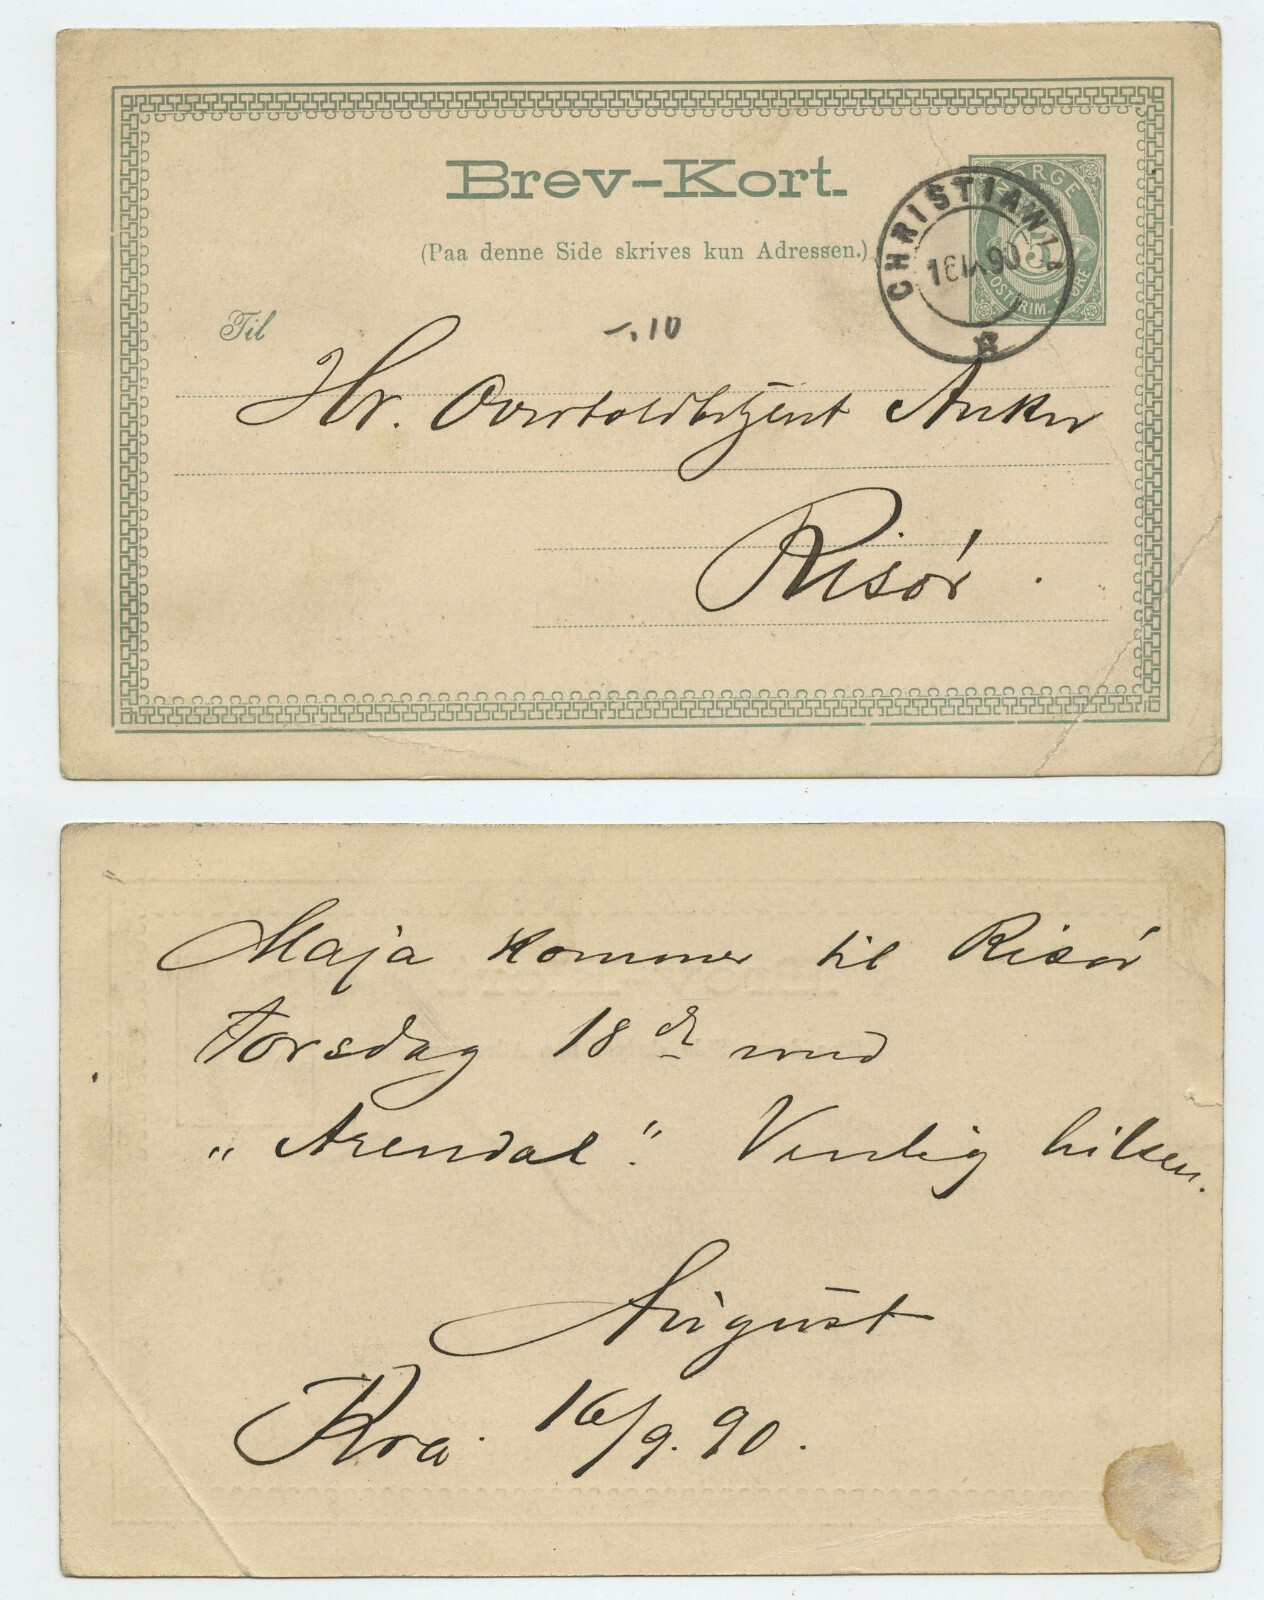 Brev-Kort.
(Paa denne Side skrives kun Adressen.)
NORGE
5
POSTFRIM. 5 ØRE
CHRISTIANIA
16 IX 90
B
Til
-.10
Hr. Overtoldbetjent Anker
Risör
Maja kommer til Risör
Torsdag 18de med
„Arendal". Venlig hilsen.
August
Kra. 16/9. 90.